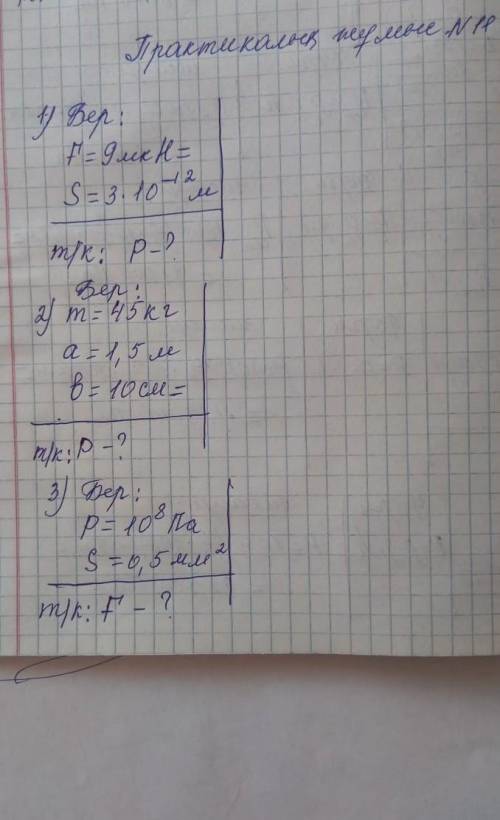 Практикалық жұмыс №11
1) Бер:
F = 9мкН =
S = 3 · 10⁻¹² м
т/к: P - ?
Бер:
2) m = 45кг
a = 1,5 м
b = 10см =
т/к: P - ?
3) Бер:
P = 10⁸ Па
S = 0,5 мм²
т/к: F - ?